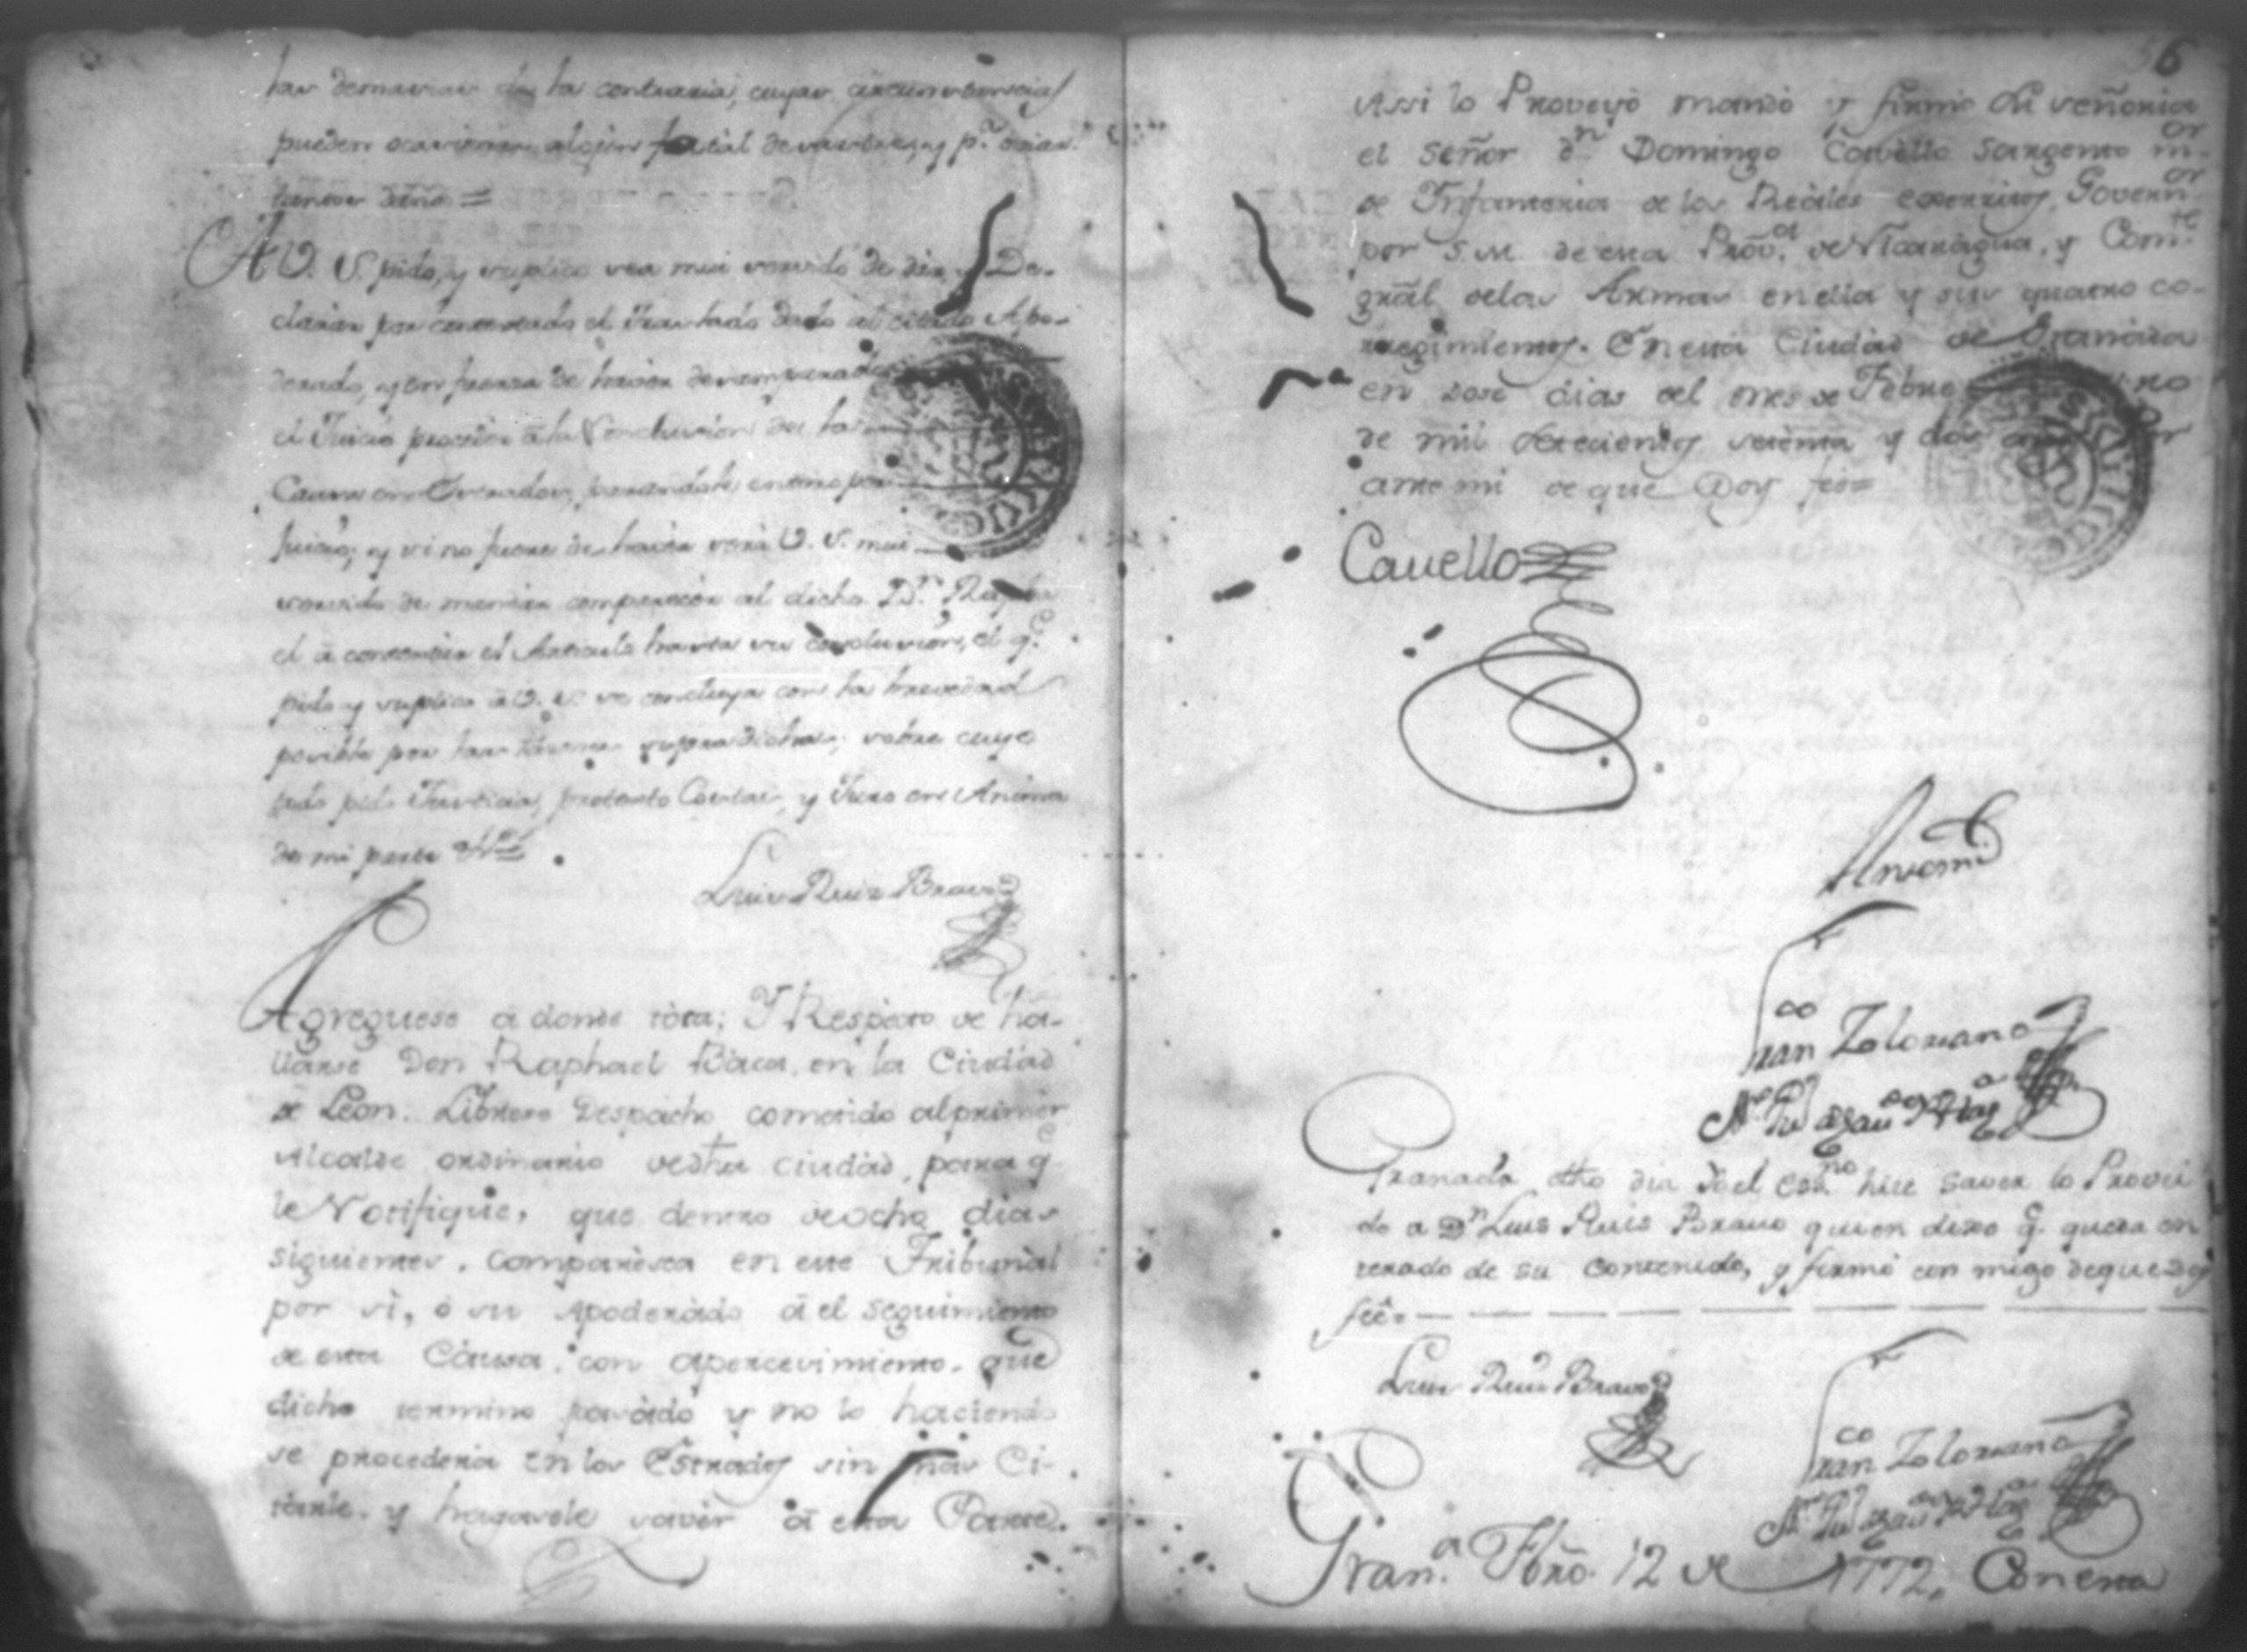 las demasias de la contraria, cuyas circunstancias
pueden ocasionar algun fatal desastre, y p.ᵃ
AV. S. pido, y suplico sea mui servido de dar, y De-
clarar por contestado el traslado dado al citado Apo-
derado, y en fuerza de haver desamparado
el Juicio proceder â la Conclusion de la
Causa en Estrados, parandole entero per
juicio; y si no fuere de hacer será V. S. mui
servido de mandar comparecer al dicho D.ⁿ Rapha
el â contextar el Articulo hasta su conclusion, el q.ᵉ
pido y suplico â V. S. se concluya con la brevedad
posible por las supradichas; sobre cuyo
todo pido Justicia, protesto Costas, y Juro en Anima
de mi parte
Luis Ruiz Bravo
Agreguese â donde toca; Y Respecto se ha-
llarse Don Raphael Baca, en la Ciudad
de Leon. Librese Despacho cometido al primer
Alcalde ordinario de dha ciudad, para q.ᵉ
le Notifique, que dentro de ocho dias
siguientes, comparesca en este Tribunal
por si, ô su Apoderado â el seguimiento
de esta Causa, con apercevimiento, que
dicho termino pasado y no lo haciendo
se procederá en los Estrados sin mas Ci-
tarle. y hagasele saver â esta Parte.
56
Assi lo Proveyò mandò y firmò su señoria
el Señor dⁿ Domingo Cavello Sargento mᵒʳ
de Infanteria de los Reàles exercitos, Governᵒʳ
por S. M. de esta Provᵃ. de Nicaràgua, y Comᵗᵉ
grâl de las Armas en ella y sus quatro co-
rregimientos. En esta Ciudad de Granàda
en dose dias del mes de Febre ro
de mil setecientos setenta y dos por
ante mi de que Doy fee=
Cavello
Antemi
Franᶜᵒ Zolorzano
Granada dho dia Yo el Essⁿᵒ hice saver lo Provei
do a Dⁿ Luis Ruis Bravo quien dixo q.ᵉ queda en
terado de su contenido, y firmó con migo de que doy
feê.
Luis Ruiz Bravo
Franᶜᵒ Zolorzano
Gran.ᵃ Fbro. 12 de 1772, Con esta